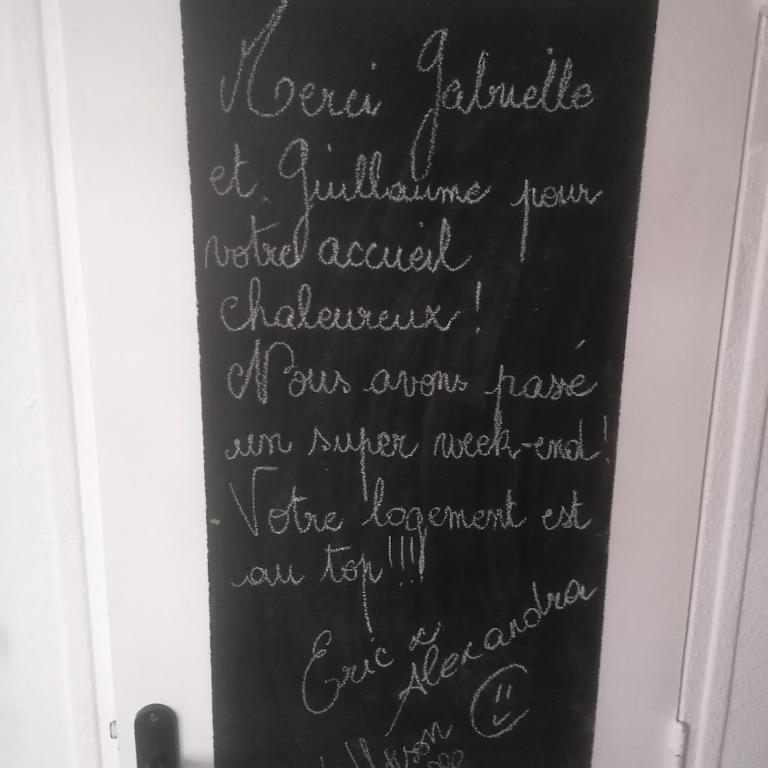 Merci Gabrielle
et Guillaume pour
votre accueil
chaleureux !
Nous avons passé
un super week-end !
Votre logement est
au top !!!
Eric x
Alexandra